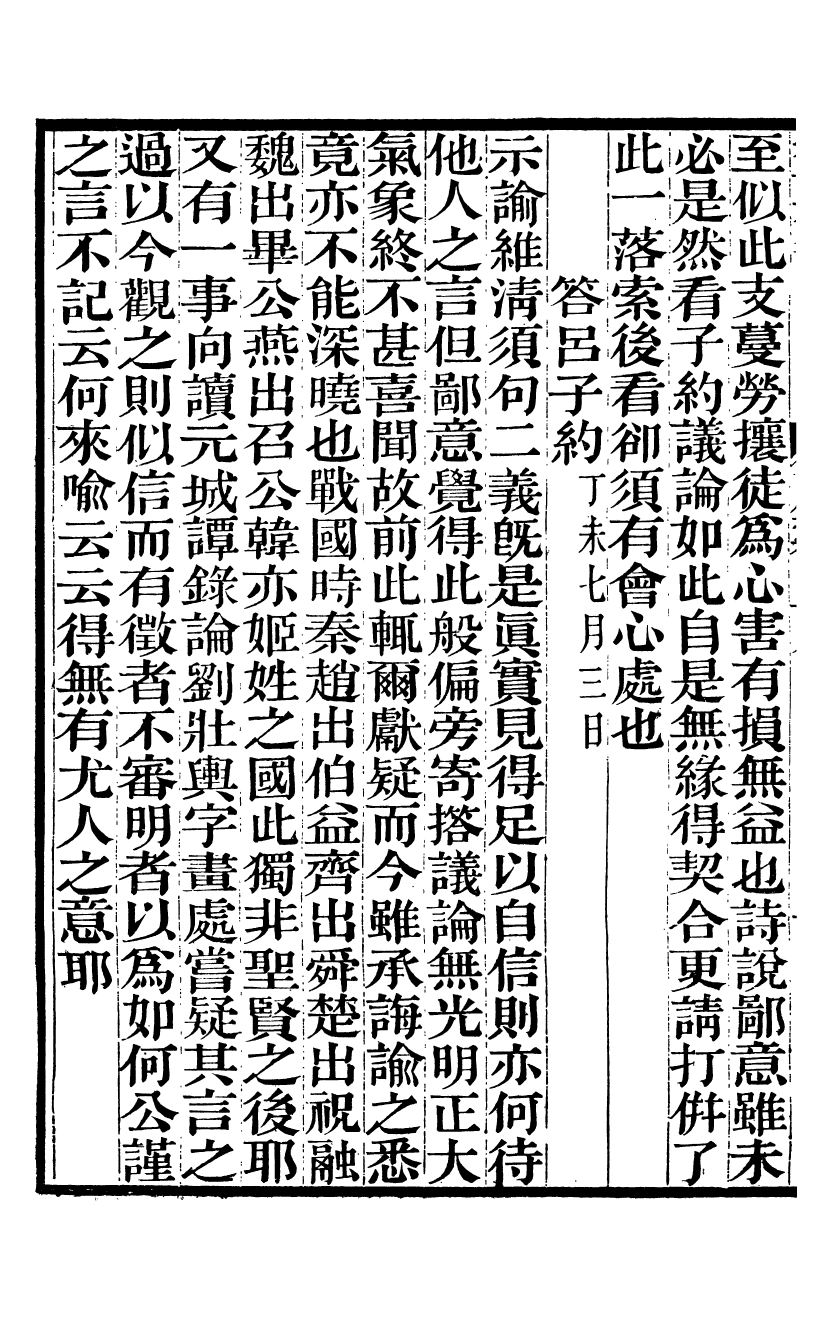 至似此支蔓勞攘徒爲心害有損無益也詩說鄙意雖未
必是然看子約議論如此自是無緣得契合更請打倂了
此一落索後看卻須有會心處也
答呂子約丁未七月三日
示諭維淸須句二義旣是眞實見得足以自信則亦何待
他人之言但鄙意覺得此般偏旁寄搭議論無光明正大
氣象終不甚喜聞故前此輒爾獻疑而今雖承誨諭之悉
竟亦不能深曉也戰國時秦趙出伯益齊出舜楚出祝融
魏出畢公燕出召公韓亦姬姓之國此獨非聖賢之後耶
又有一事向讀元城譚錄論劉壯輿字畫處嘗疑其言之
過以今觀之則似信而有徵者不審明者以爲如何公謹
之言不記云何來喩云云得無有尤人之意耶